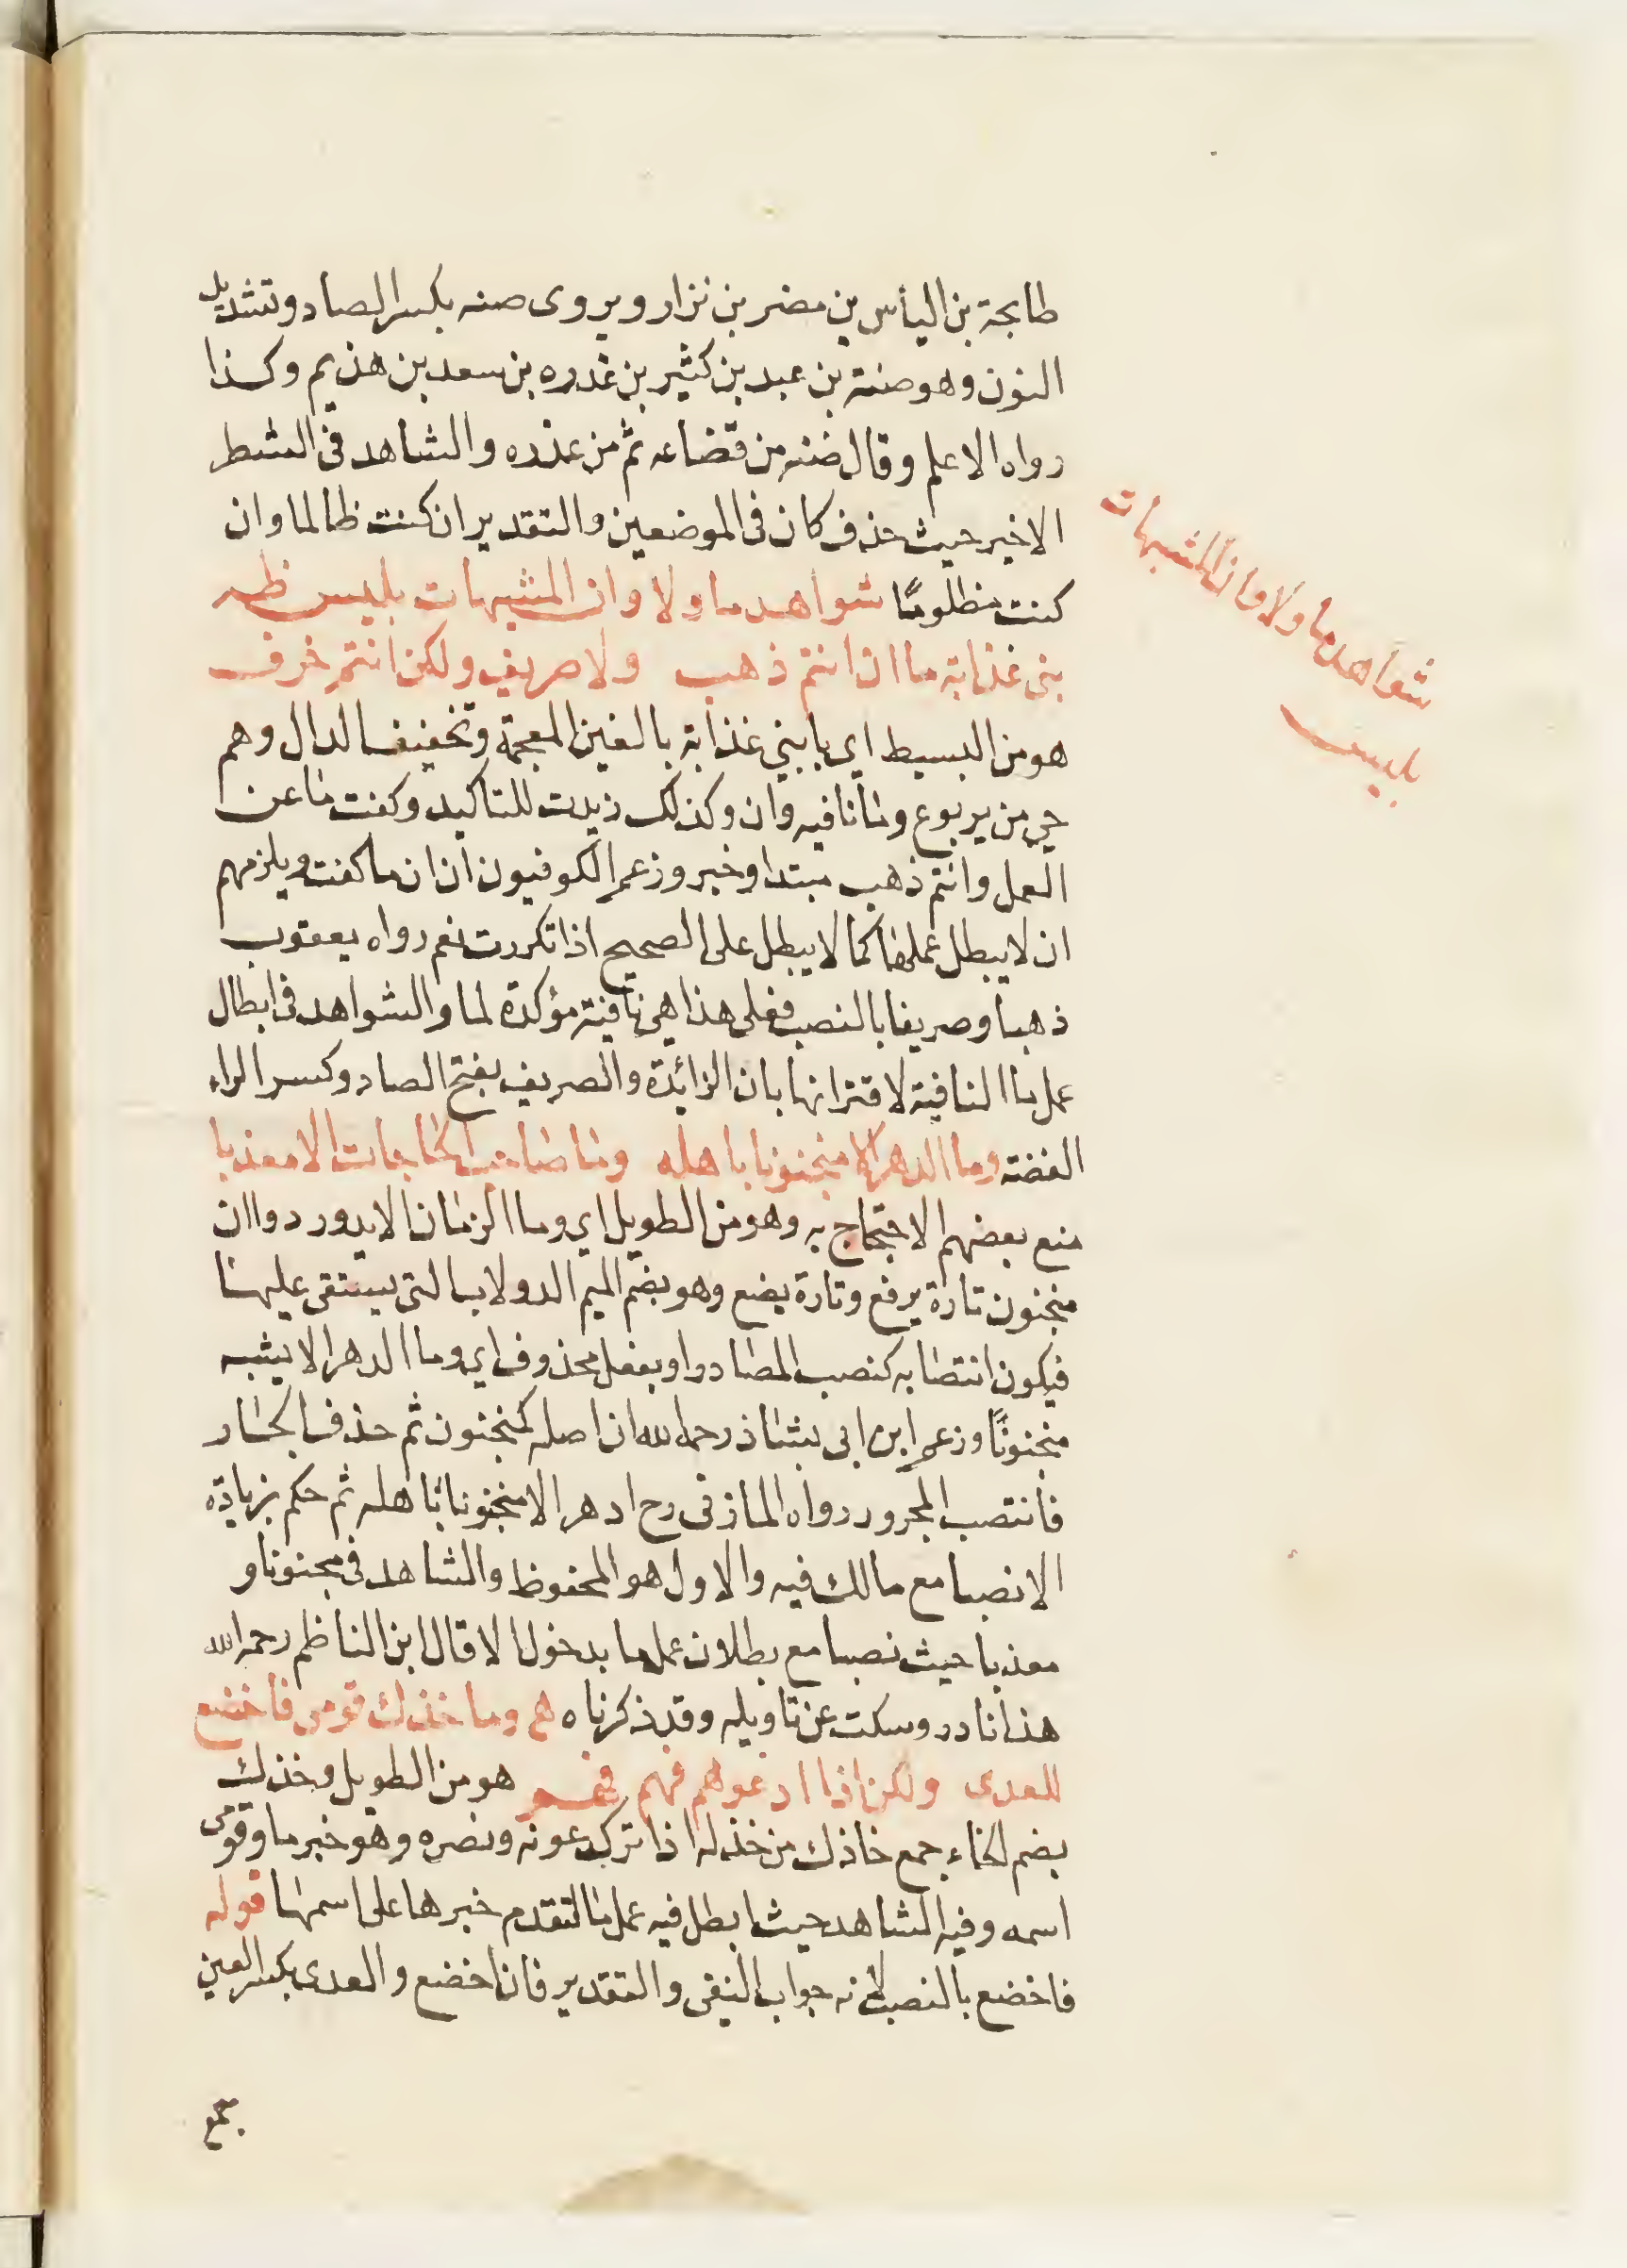 طابخة بن اليأس بن مضر بن نزار ويروى صنه بكسر الصاد وتشديد
النون وهو صنة بن عبد بن كثير بن عذره بن سعد بن هذيم وكذا
رواه الاعلم وقال ضنه من قضاعه ثم من عذره والشاهد في الشطر
الاخير حيث حذف كان في الموضعين والتقدير ان كنت ظالما وان
كنت مظلومًا شواهد ما ولا وان المشبهات بليس ظه
بنى غدانة ما ان انتم ذهب ولا صريف ولكن انتم خزف
هو من البسيط اي يا بني غدانة بالغين المعجمة وتخفيف الدال وهم
حي من يربوع وما نافيه وان وكذلك زيدت للتاكيد وكفت ما عن
العمل وانتم ذهب مبتدا وخبر وزعم الكوفيون ان ان ما كفت ويلزمهم
ان لا يبطل عملها كما لا يبطل على الصحيح اذا تكررت نعم رواه يعقوب
ذهبا وصريفا بالنصب فعلى هذا هي نافية مؤكدة لما والشواهد في ابطال
عمل ما النافية لاقترانها بان الزائدة والصريف بفتح الصاد وكسر الراء
الفضة وما الدهر الا منجنونا باهله وما صاحب الحاجات الا معذبا
منع بعضهم الاحتجاج به وهو من الطويل اي وما الزمان الا يدور دوران
منجنون تارة يرفع وتارة يضع وهو بضم الميم الدولاب التى يستقى عليها
فيكون انتصابه كنصب المصادر او بفعل محذوف اي وما الدهر الا يشبه
منجنونًا وزعم ابن ابى بشاذ رحمه الله ان اصله كمنجنون ثم حذف الجار
فانتصب المجرور رواه المازنى رح ا دهرا الا منجنونا باهله ثم حكم بزيادة
الا نصبا مع مالك فيه والاول هو المحفوظ والشاهد في مجنونا و
معذبا حيث نصبا مع بطلان عمل ما بدخول الا قال ابن الناظم رحمه الله
هذا نادر وسكت عن تاويله وقد ذكرناه هم وما خذل قومى فاخضع
للعدى ولكن اذا ادعوهم فهم فهم هو من الطويل وخذل
بضم الخاء جمع خاذل من خذله اذا ترك عونه ونصره وهو خبر ما وقومى
اسمه وفيه الشاهد حيث ابطل فيه عمل ما لتقدم خبرها على اسمها قوله
فاخضع بالنصب لانه جواب النفى والتقدير فانا اخضع والعدى بكسر العين
جمع
شواهد ما ولا وان المشبهات
بليس